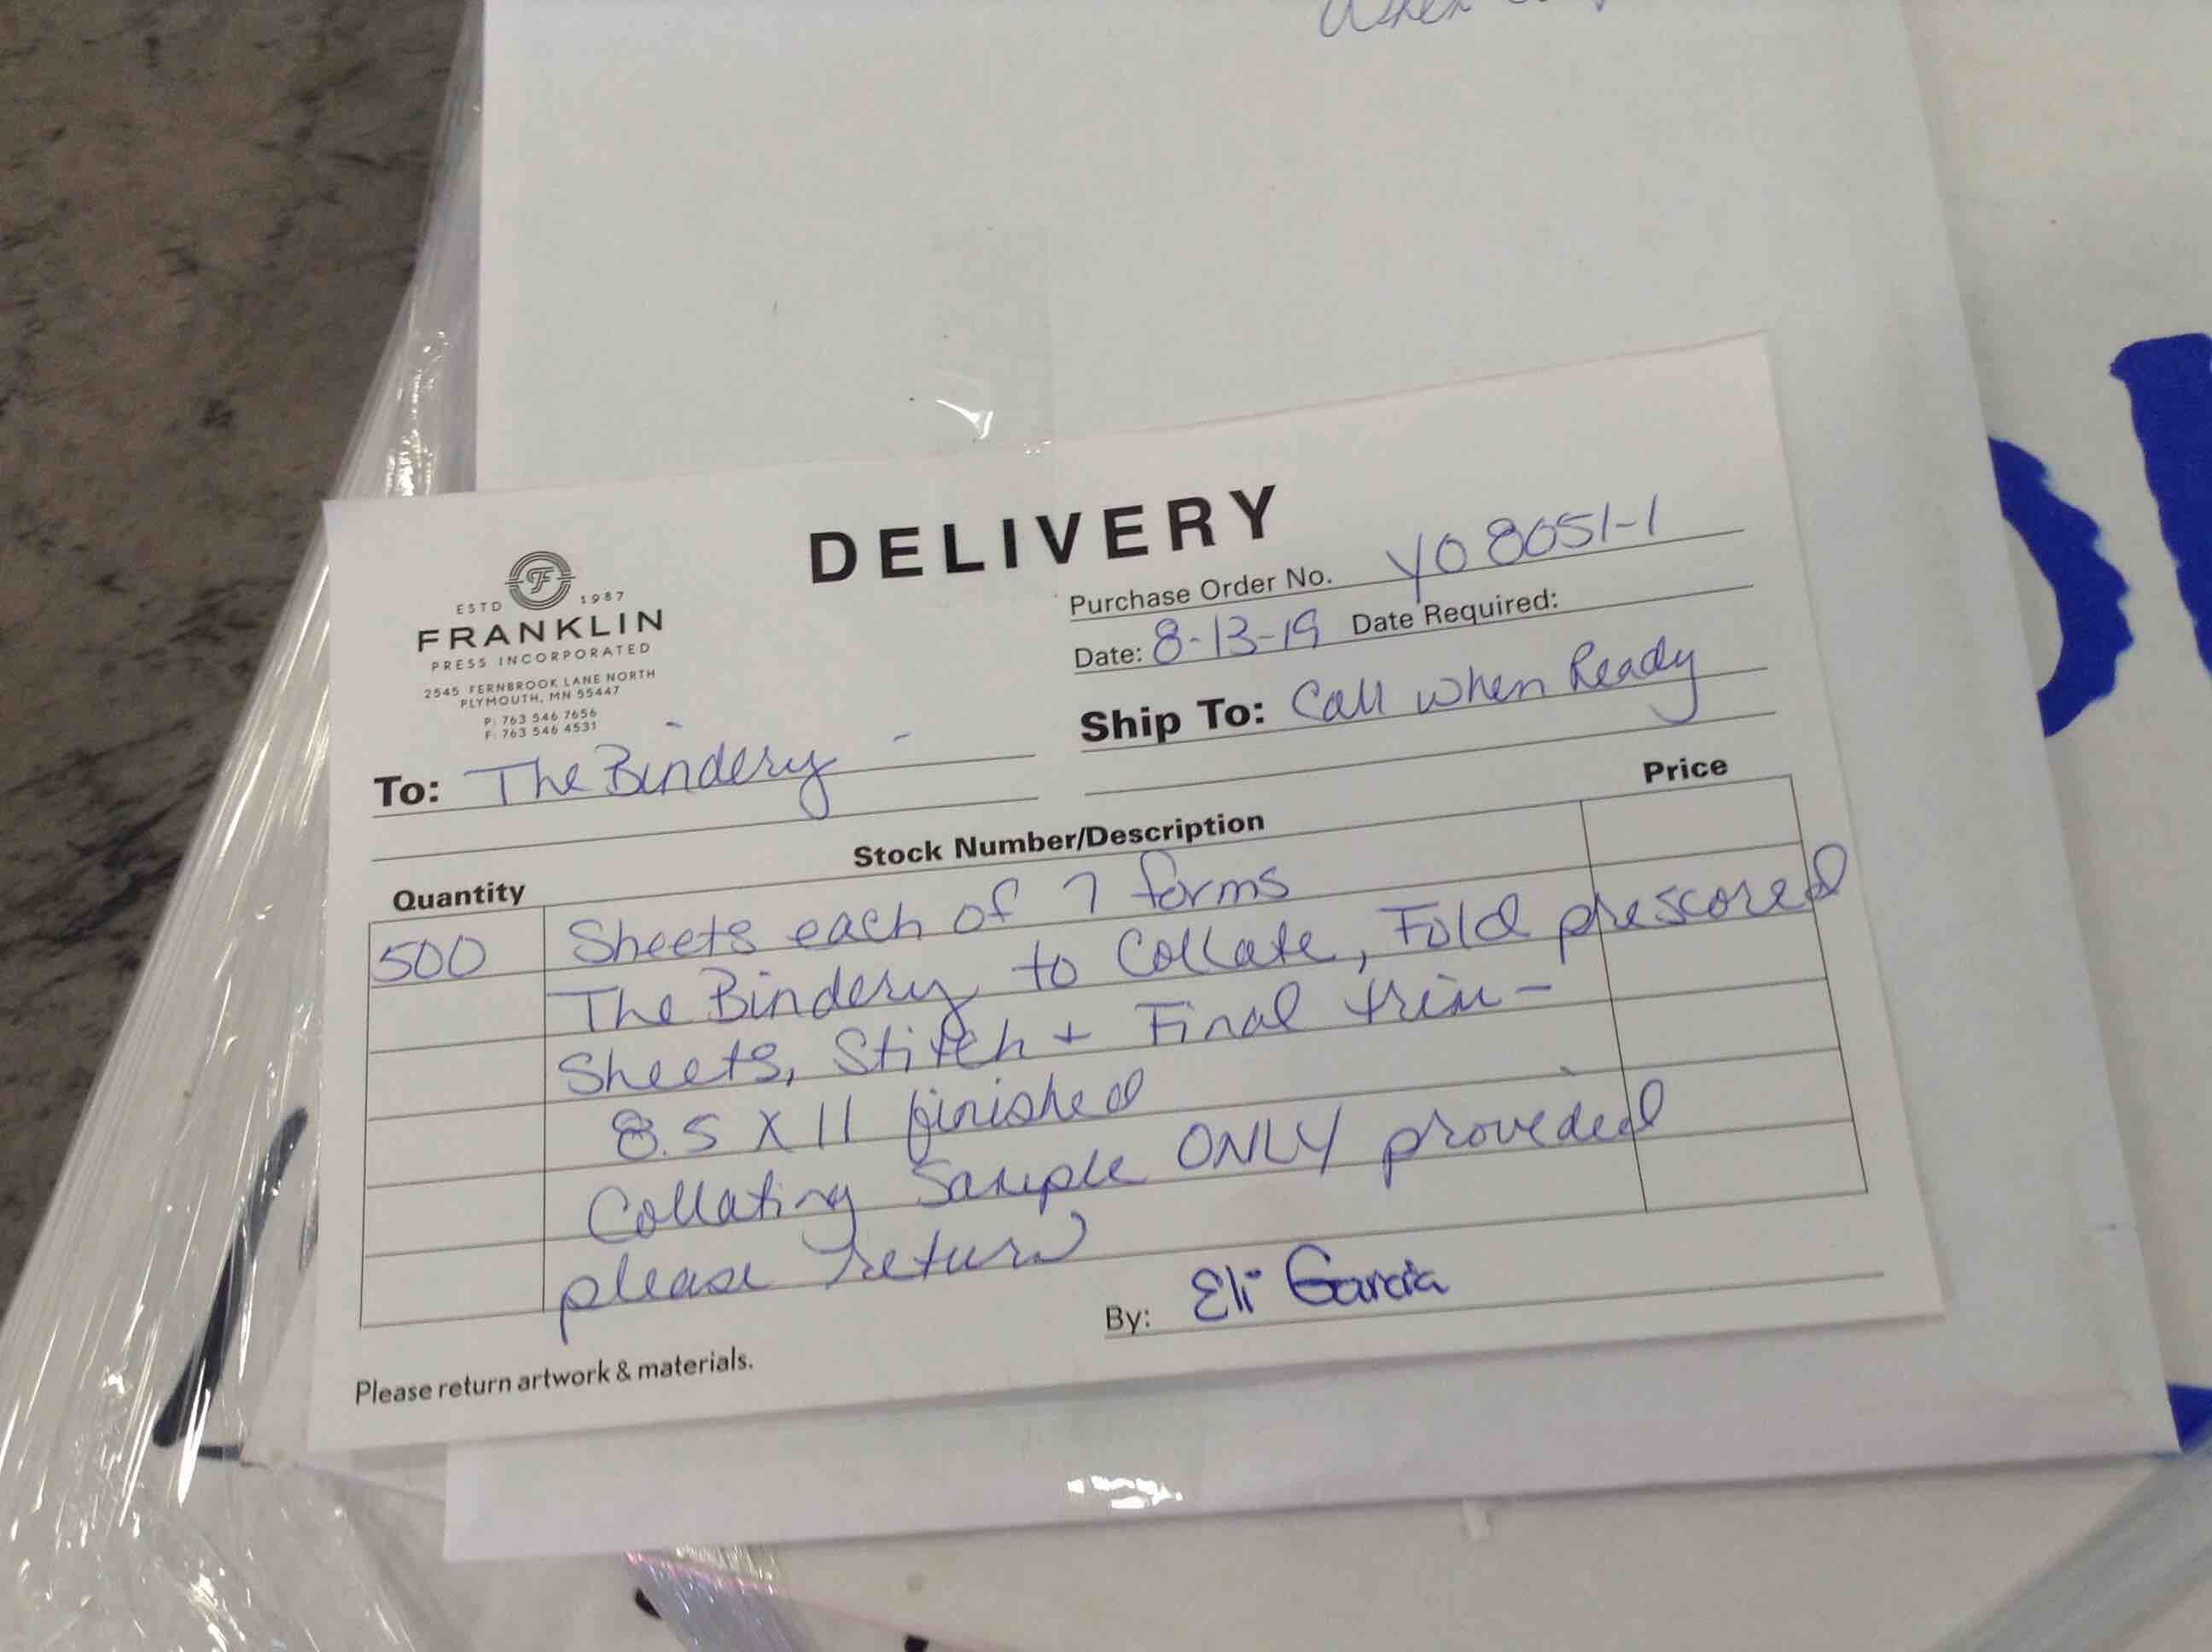 When
DELIVERY
ESTD 1987
FRANKLIN
PRESS INCORPORATED
2545 FERNBROOK LANE NORTH
PLYMOUTH, MN 55447
P: 763 546 7656
F: 763 546 4531
Purchase Order No. YO 8051-1
Date: 8-13-19 Date Required:
To: The Bindery -
Ship To: Call when Ready
Quantity Stock Number/Description Price
500 Sheets each of 7 forms
The Bindery to Collate, Fold prescored
Sheets, Stitch + Final trim -
8.5 X 11 finished
Collating Sample ONLY proveded
please return
By: Eli Garcia
Please return artwork & materials.